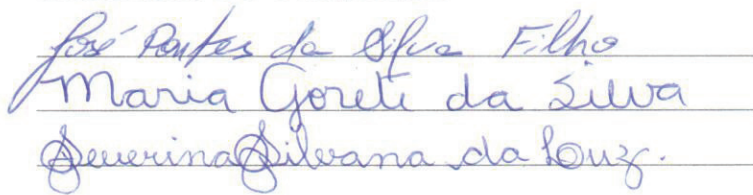 José Pontes da Silva Filho
Maria Gorete da Silva
Severina Silvana da Luz.